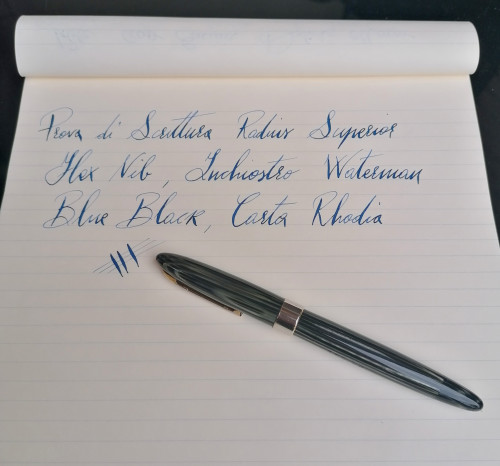 Prova di Scrittura Radius Superior
Flex Nib, Inchiostro Waterman
Blue Black, Carta Rhodia